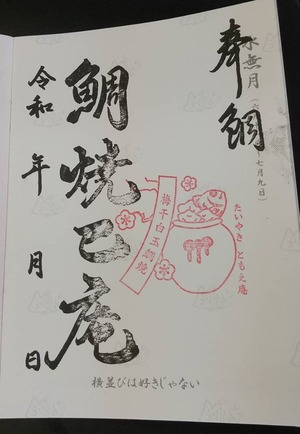 水無月（六 〜七月九日）
奉鯛
たいやき ともえ庵
梅干白玉鯛焼
鯛焼巴庵
令和 年 月 日
横並びは好きじゃない